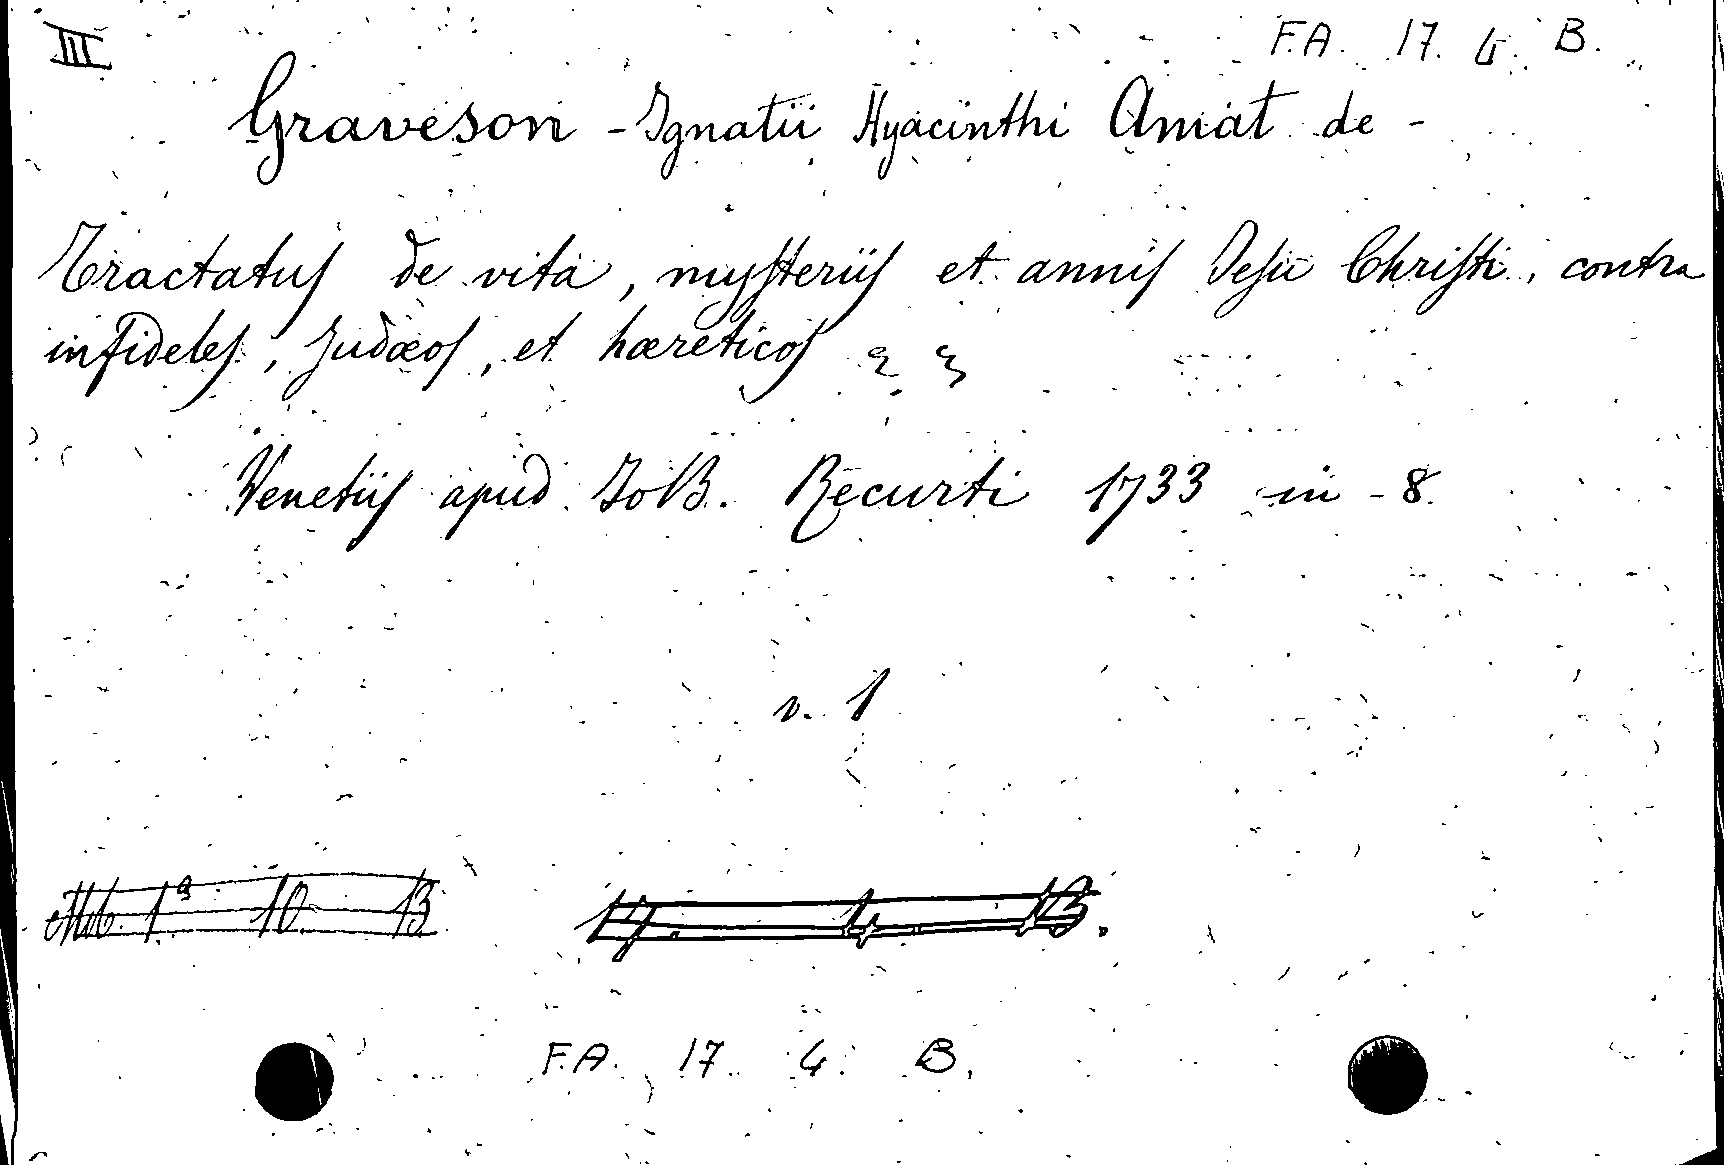 III F.A. 17. 4. B.
Graveson - Ignatii Hyacinthi Amat de -
Tractatus de vita, mysteriis et annis Jesu Christi, contra
infideles, Judæos, et hæreticos
Venetiis apud JoB. Recurti 1733 in - 8.
v. 1
1ª 10 B 17. 4. B.
F.A. 17 4. B.